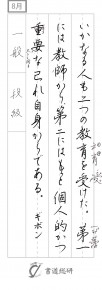 8月
いかなる人も二つの教育を受けた。第一
には教師から、第二にはもっと個人的かつ
重要な己れ自身からである。ギボン
一般
段級
書道総研